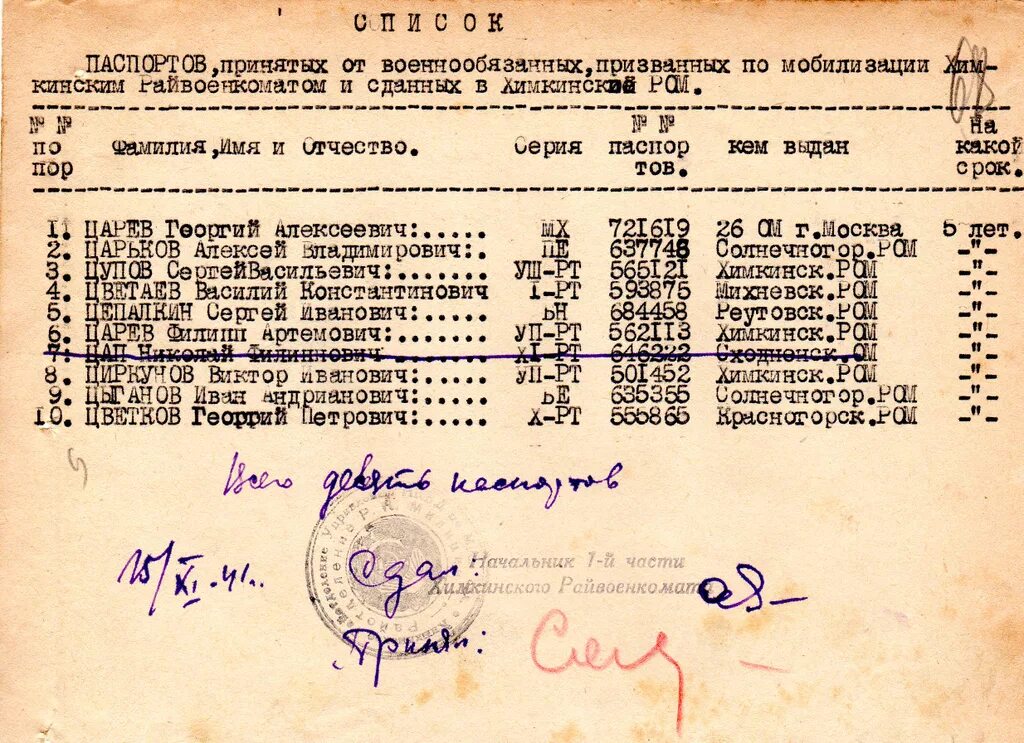 СПИСОК
68
ПАСПОРТОВ,принятых от военнообязанных,призванных по мобилизации Хим-
кинским Райвоенкоматом и сданных в Химкинский РОМ.
№ № по пор Фамилия,Имя и Отчество. Серия № № паспор тов. кем выдан На какой срок.
1. ЦАРЕВ Георгий Алексеевич:..... МХ 721619 26 ОМ г.Москва 5 лет.
2. ЦАРЬКОВ Алексей Владимирович:. ПЕ 637748 Солнечногор.РОМ -"-
3. ЦУПОВ СергейВасильевич:..... УШ-РТ 565121 Химкинск.РОМ -"-
4. ЦВЕТАЕВ Василий Константинович I-РТ 593875 Михневск.РОМ -"-
5. ЦЕПАЛКИН Сергей Иванович:..... ЬН 684458 Реутовск.РОМ -"-
6. ЦАРЕВ Филипп Артемович:..... УП-РТ 562113 Химкинск.РОМ -"-
7. ЦАП Николай Филиппович XI-РТ 646222 Сходненск.ОМ -"-
8. ЦИРКУНОВ Виктор Иванович:..... УП-РТ 501452 Химкинск.РОМ -"-
9. ЦЫГАНОВ Иван Андрианович:..... ЬЕ 635355 Солнечногор.РОМ -"-
10. ЦВЕТКОВ Георгий Петрович:..... Х-РТ 555865 Красногорск.РОМ -"-
Всего девять паспортов
15/XI-41г.
Сдал:
Начальник 1-й части
Химкинского Райвоенкомата
Принял: